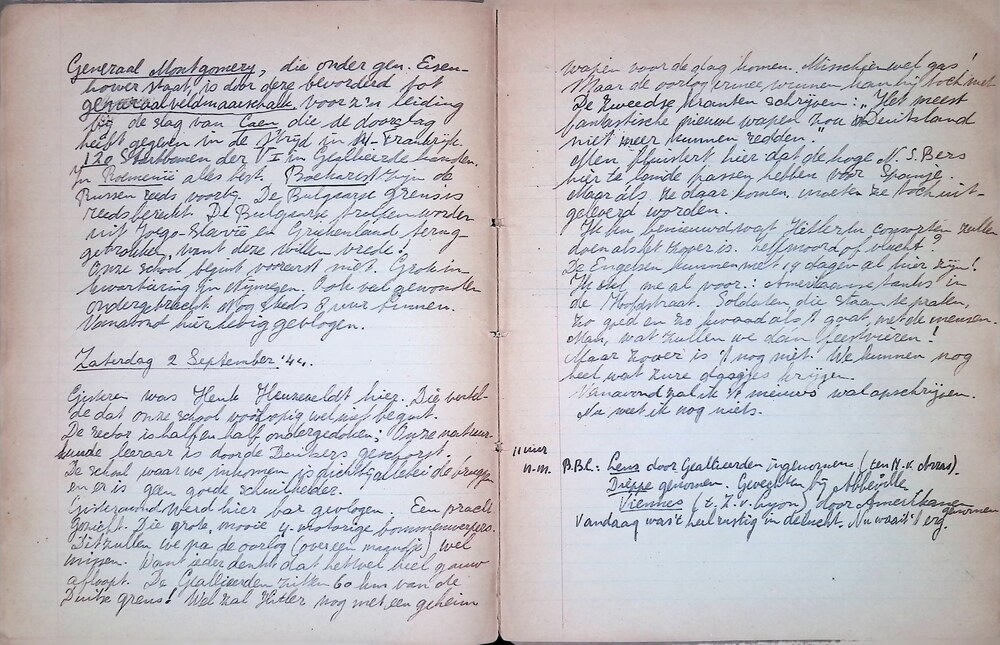 Generaal Montgomery, die onder gen. Eisen-
hower staat, is door deze bevorderd tot
generaalveldmaarschalk voor z'n leiding
bij de slag van Caen die de doorslag
heeft gegeven in de strijd in N-Frankrijk.
120 der V I in Geallieerde handen.
In Roemenië alles best. Boekarest zijn de
Russen reeds voorbij. De Bulgaarse grens is
reeds bereikt. De Bulgaarse troepen worden
uit Jogo-Slavië en Griekenland terug-
getrokken, want deze willen vrede!
Onze school begint voorerst niet. Grote in
kwartiering in Nijmegen. Ook veel gewonden
ondergebracht. Nog steeds 8 uur binnen.
Vanavond hier hevig gevlogen.
Zaterdag 2 September '44.
Gisteren was Henk hier. Die vertel-
de dat onze school voorlopig wel niet begint.
De rector is half en half ondergedoken; Onze natuur-
kunde leeraar is door de Duitsers geschorst.
De school waar we inkomen is dichtbij de bruggen
en er is geen goede schuilkelder.
Gisteravond werd hier bar gevlogen. Een pracht
gezicht. Die grote, mooie 4-motorige bommenwerpers.
Dit zullen we na de oorlog (over een maandje) wel
missen. Want ieder denkt dat het wel heel gauw
afloopt. De Geallieerden zitten 60 km van de
Duitse grens! Wel zal Hitler nog met een geheim
wapen voor de dag komen. Misschien wel gas!
Maar de oorlog ermee winnen kan hij toch niet
De Zweedse kranten schrijven: „Het meest
fantastische nieuwe wapen zou Duitsland
niet meer kunnen redden."
Men fluistert hier dat de hoge N.S.Bers
hier te lande passen hebben vóór Spanje.
Maar áls ze daar komen, moeten ze toch uit-
geleverd worden.
Ik ben benieuwd wat Hitler en consorten zullen
doen als het zover is. Zelfmoord of vlucht?
De Engelsen kunnen met 14 dagen al hier zijn!
Ik stel me al voor: Amerikaanse tanks in
de Hoofdstraat. Soldaten, die staan te praten,
zo goed en zo kwaad als 't gaat, met de mensen.
Man, wat zullen we dan feestvieren!
Maar zover is 't nog niet. We kunnen nog
heel wat zure daagjes krijgen.
Vanavond zal ik 't nieuws wel opschrijven.
Nu weet ik nog niets.
11 uur
n.m. B.B.C.: Lens door Geallieerden ingenomen (ten N.v. Arras).
Dieppe genomen. Gevechten bij Abbeville
Vienne (t. Z. v. Lyon) door Amerikanen genomen
Vandaag was 't heel rustig in de lucht. Nu waait 't erg.